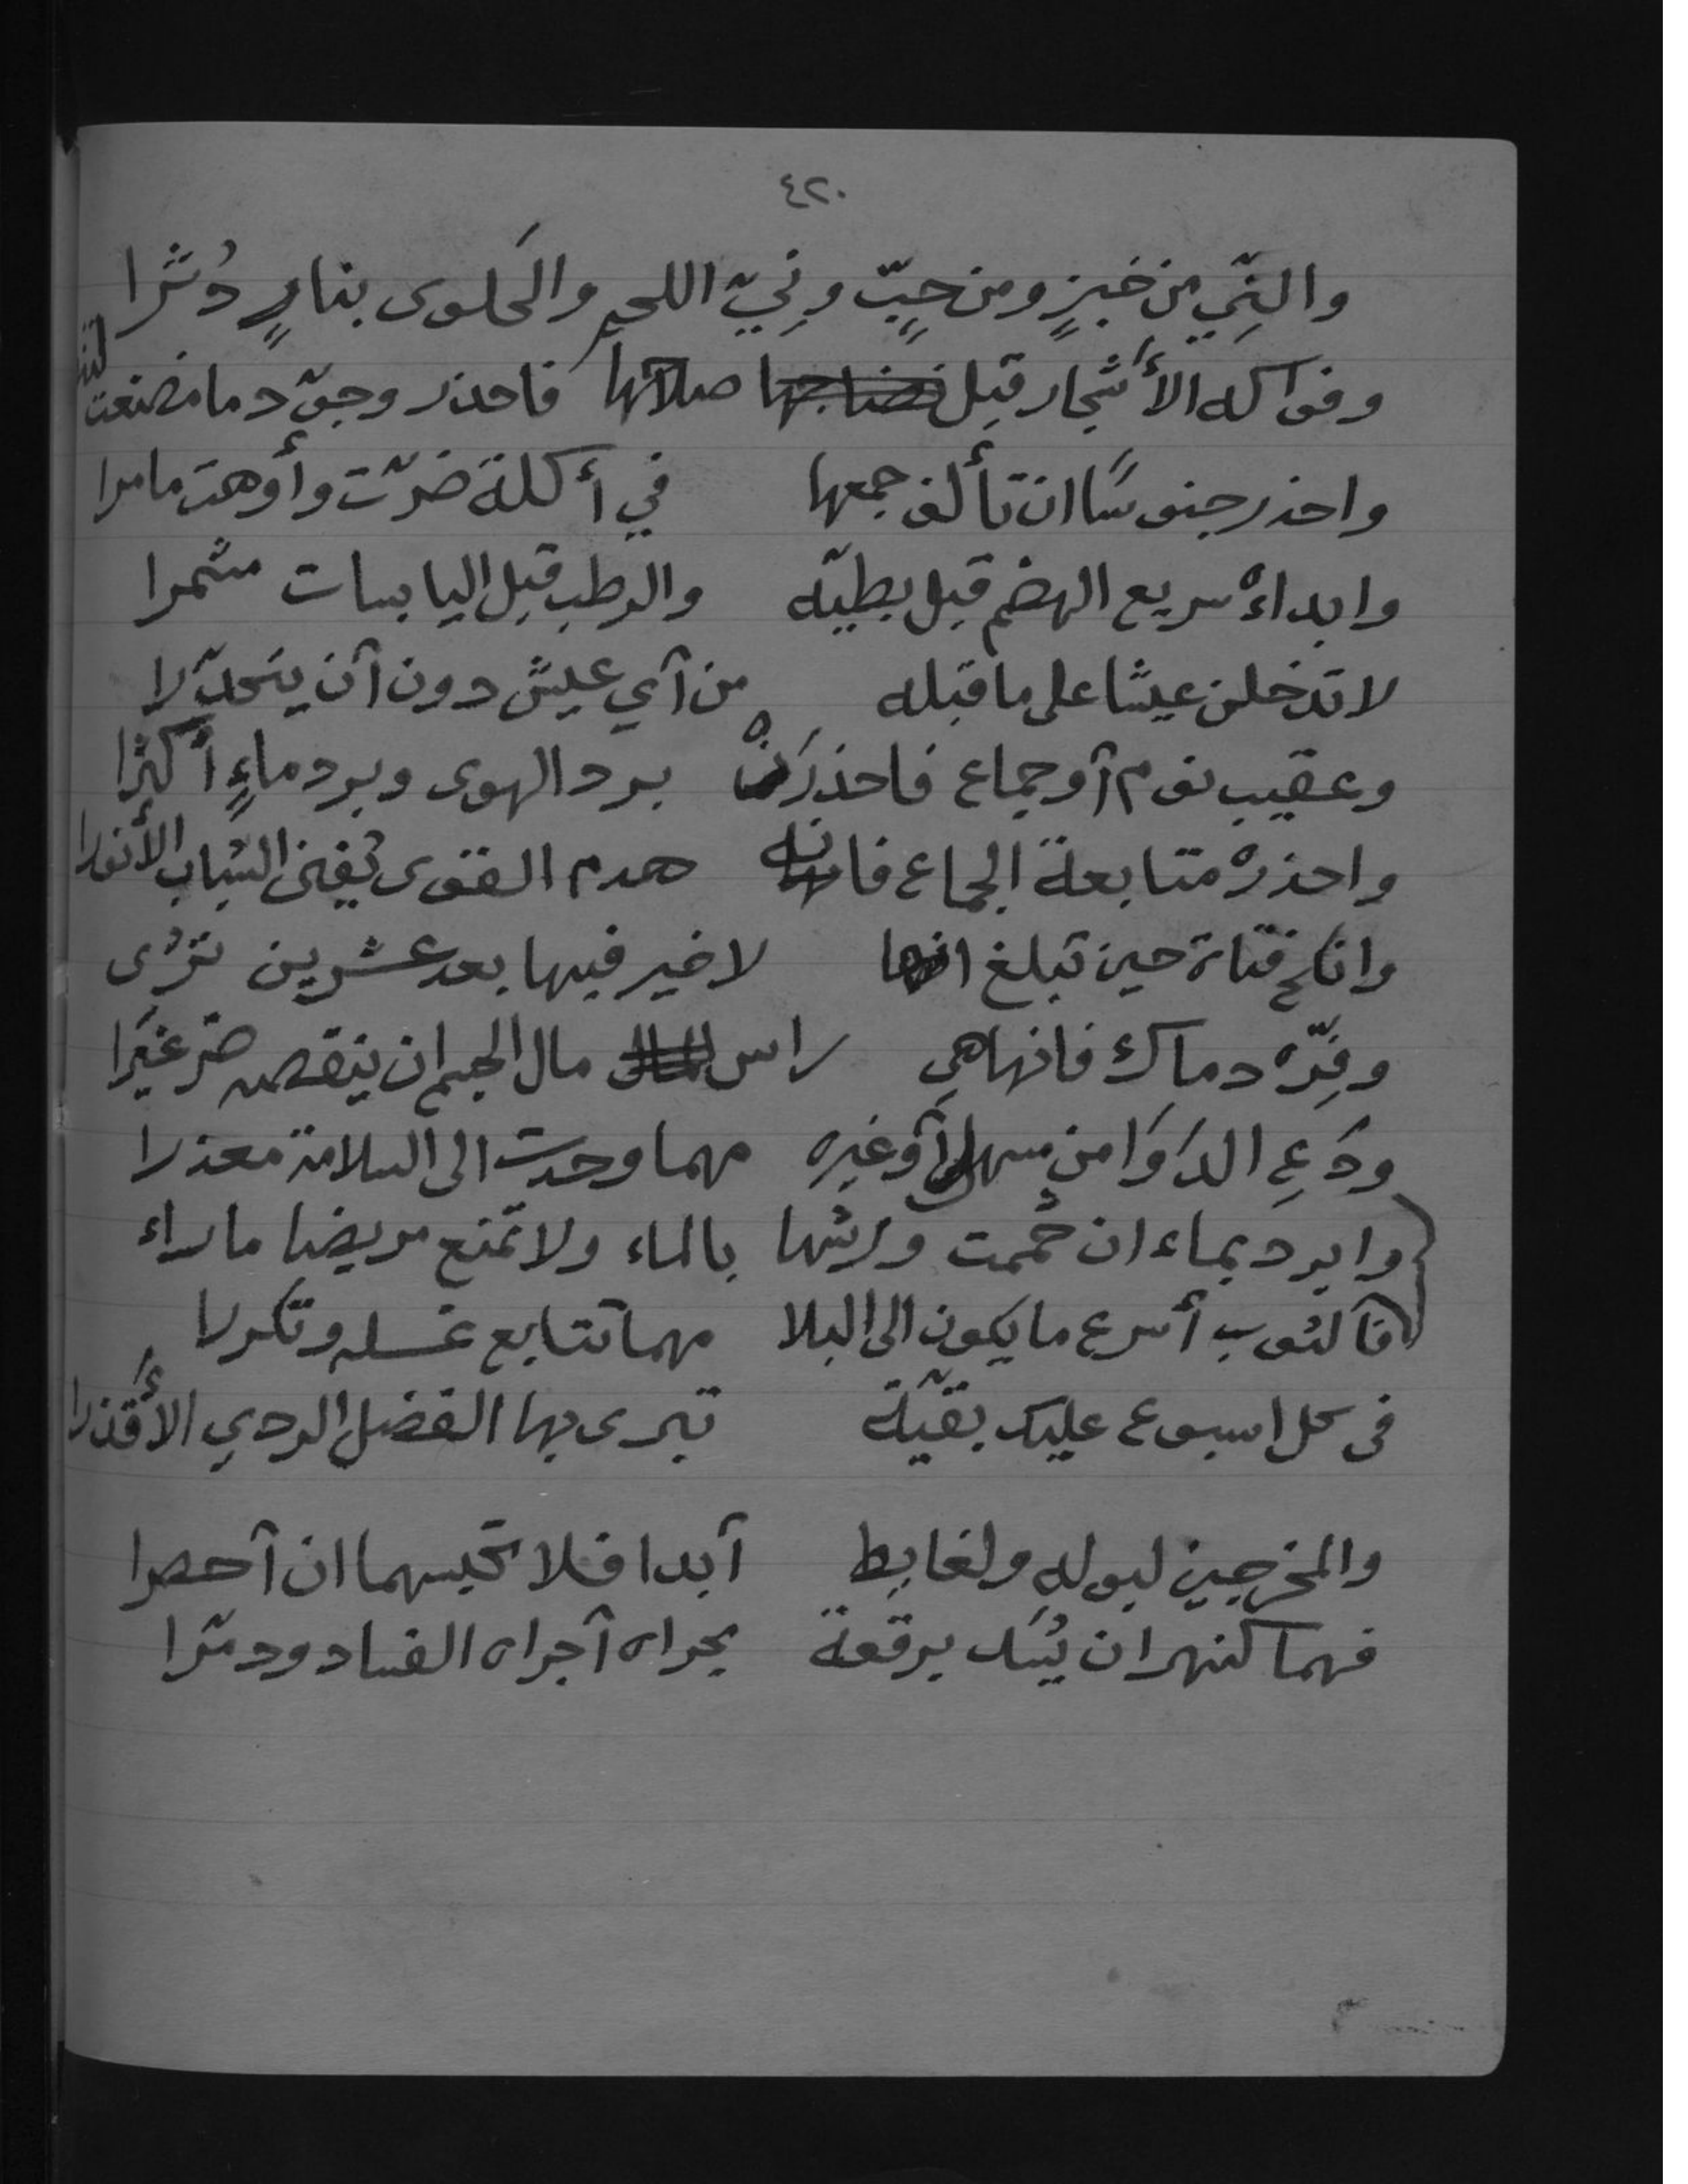 ٤٢٠
والنِّي من خبزٍ ومن حبٍّ ونِيّ اللحم والحَلوى بنارٍ دُثرا
وفواكه الأشجار قبل صلاتها فاحذر وجوّد ما مضغت
واحذر جنوسًا ان تألف جمعها في أكلة ضرّت وأوهت ما مرا
وابداءْ سريع الهضم قبل بطيّه والرطب قبل اليابسات مشمرا
لا تدخلن عيشا على ما قبله من آي عيش دون آن يتحدّرا
وعقيب نوم آو جماع فاحذرَنْ برد الهوى وبرد ماءٍ أكثرا
واحذرْ متابعة الجماع فانه هدم القوى يُفنى الشباب الأنورا
وانكح فتاة حين تبلغ لا خير فيها بعد عشرين تُرى
وفِّره دماك فانها هي راس مال الجسم ان ينقص ضر غيَرا
ودَعِ الدَوَا من مسهل آو غيره مهما وجدت الى السلامة معذرا
وابرد بماء ان حُممت ورشها بالماء ولا تمنع مريضا ما يراء
فآلثوب أسرع ما يكون الى البلا مهما تتابع غسله وتكررا
فى كل اسبوع عليك بقيّة تبرى بها الفضل الردي الأقذرا
والمخرجين لبوله ولغايط آبدا فلا تحبسهما ان آحصرا
فهما كنهر ان يُسَد برقعة يجراه آجراه الفساد ودمّرا